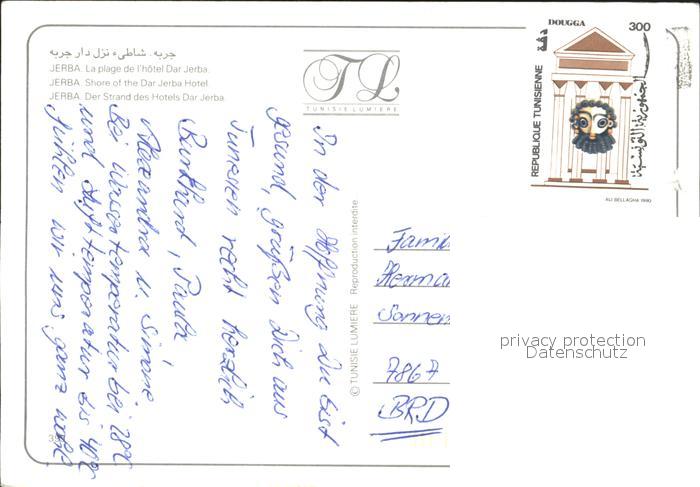 جربه. شاطىء نزل دار جربه
JERBA. La plage de l'hôtel Dar Jerba.
JERBA. Shore of the Dar Jerba Hotel.
JERBA. Der Strand des Hotels Dar Jerba.
TL
TUNISIE LUMIERE
DOUGGA
دقة
300
REPUBLIQUE TUNISIENNE
الجمهورية التونسية
ALI BELLAGHA 1990
In der Hoffnung Du bist
gesund, grüßen Dich aus
Tunesien recht herzlich
Burkhard, Paula,
Alexandra u. Simone
Bei Wassertemperatur bei 28°C
und Lufttemperatur bis 40°C
fühlen wir uns ganz wohl.
© TUNISIE LUMIERE Reproduction interdite
Famil
Herma
Sonnen
7867
BRD
privacy protection
Datenschutz